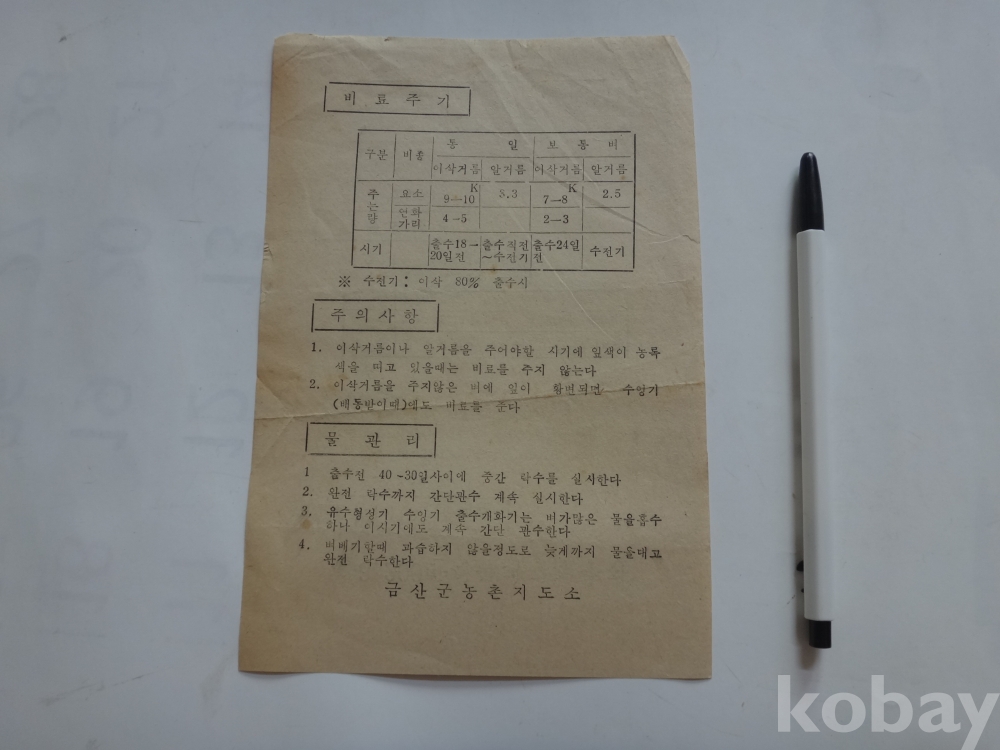 비료주기
구분 비종 통일 보통벼
이삭거름 알거름 이삭거름 알거름
주는량 요소 9-10K 3.3 7-8K 2.5
염화가리 4-5 2-3
시기 출수18-20일전 출수직전~수전기 출수24일전 수전기
※ 수전기: 이삭 80% 출수시
주의사항
1. 이삭거름이나 알거름을 주어야할 시기에 잎색이 농록
색을 띠고 있을때는 비료를 주지 않는다
2. 이삭거름을 주지않은 벼에 잎이 황변되면 수잉기
(배동받이때)에도 비료를 준다
물관리
1 출수전 40~30일사이에 중간 락수를 실시한다
2. 완전 락수까지 간단관수 계속 실시한다
3. 유수형성기 수잉기 출수개화기는 벼가많은 물을흡수
하나 이시기에도 계속 간단 관수한다
4. 벼베기할때 과습하지 않을정도로 늦게까지 물을대고
완전 락수한다
금산군농촌지도소
kobay